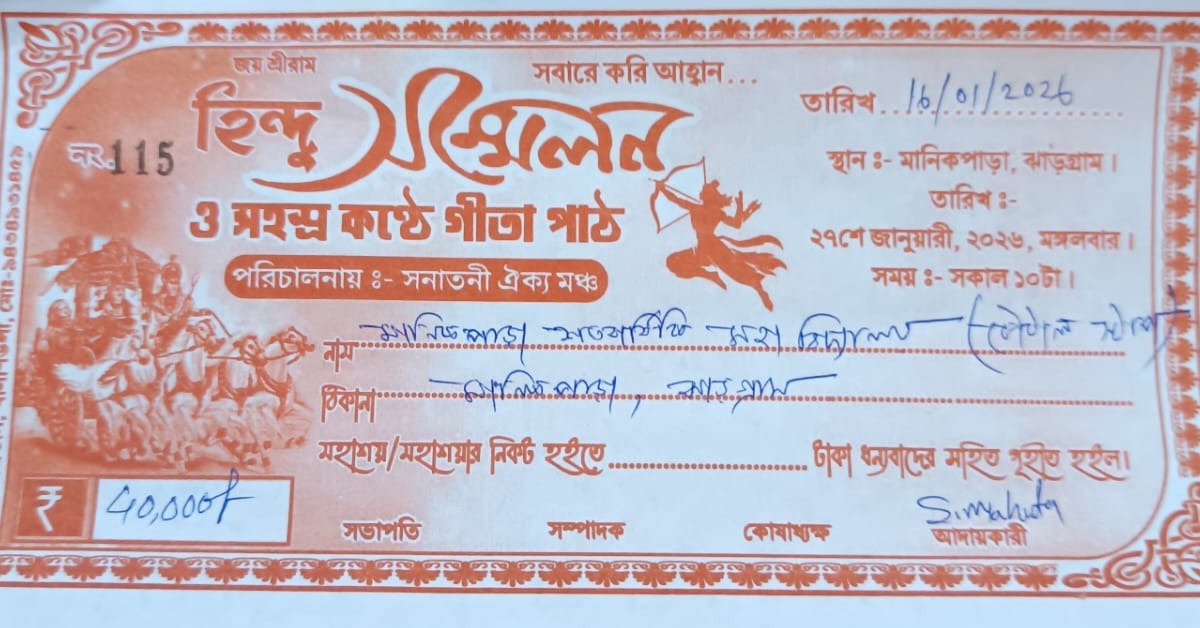 জয় শ্রীরাম
সবারে করি আহ্বান...
তারিখ 16/01/2026
নং 115
হিন্দু সম্মেলন
ও সহস্র কণ্ঠে গীতা পাঠ
পরিচালনায় ঃ- সনাতনী ঐক্য মঞ্চ
স্থান ঃ- মানিকপাড়া, ঝাড়গ্রাম।
তারিখ ঃ-
২৭শে জানুয়ারী, ২০২৬, মঙ্গলবার।
সময় ঃ- সকাল ১০টা।
নাম মানিকপাড়া শতবার্ষিকি মহা বিদ্যালয়
ঠিকানা মানিকপাড়া, ঝাড়গ্রাম
মহাশয়/মহাশয়ার নিকট হইতে.............. টাকা ধন্যবাদের সহিত গৃহীত হইল।
₹ 40,000/-
S. Mahata
সভাপতি সম্পাদক কোষাধ্যক্ষ আদায়কারী